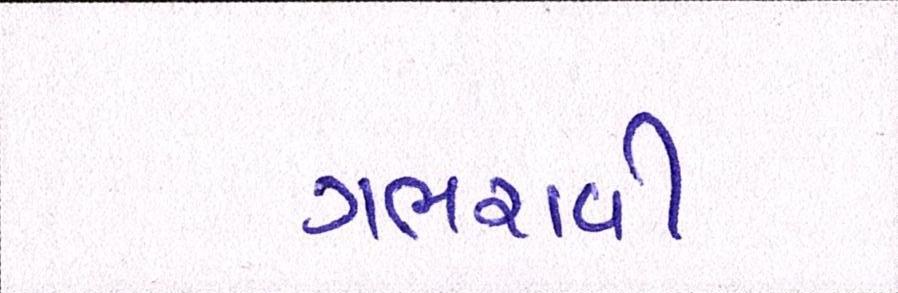 ગભરાવી